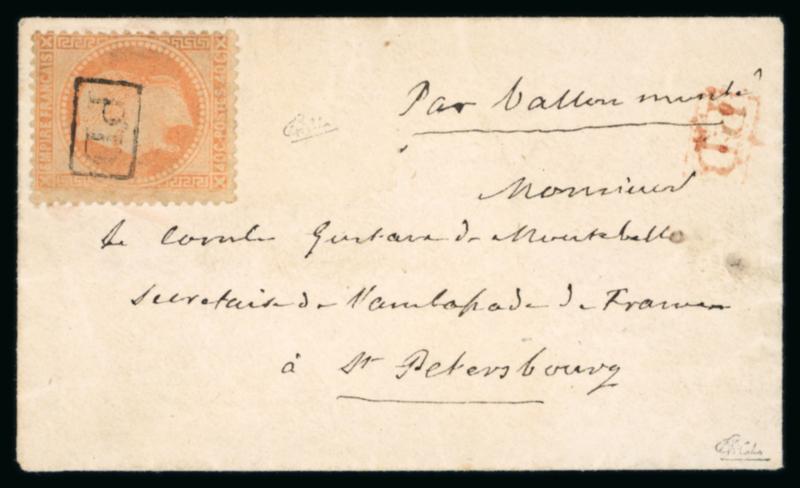 EMPIRE FRANÇAIS
40 C. POSTES 40 C.
PD
Par Ballon monté
PD
Monsieur
le Comte Gustave de Montebello
Secretaire de l'ambassade de France
à St Petersbourg